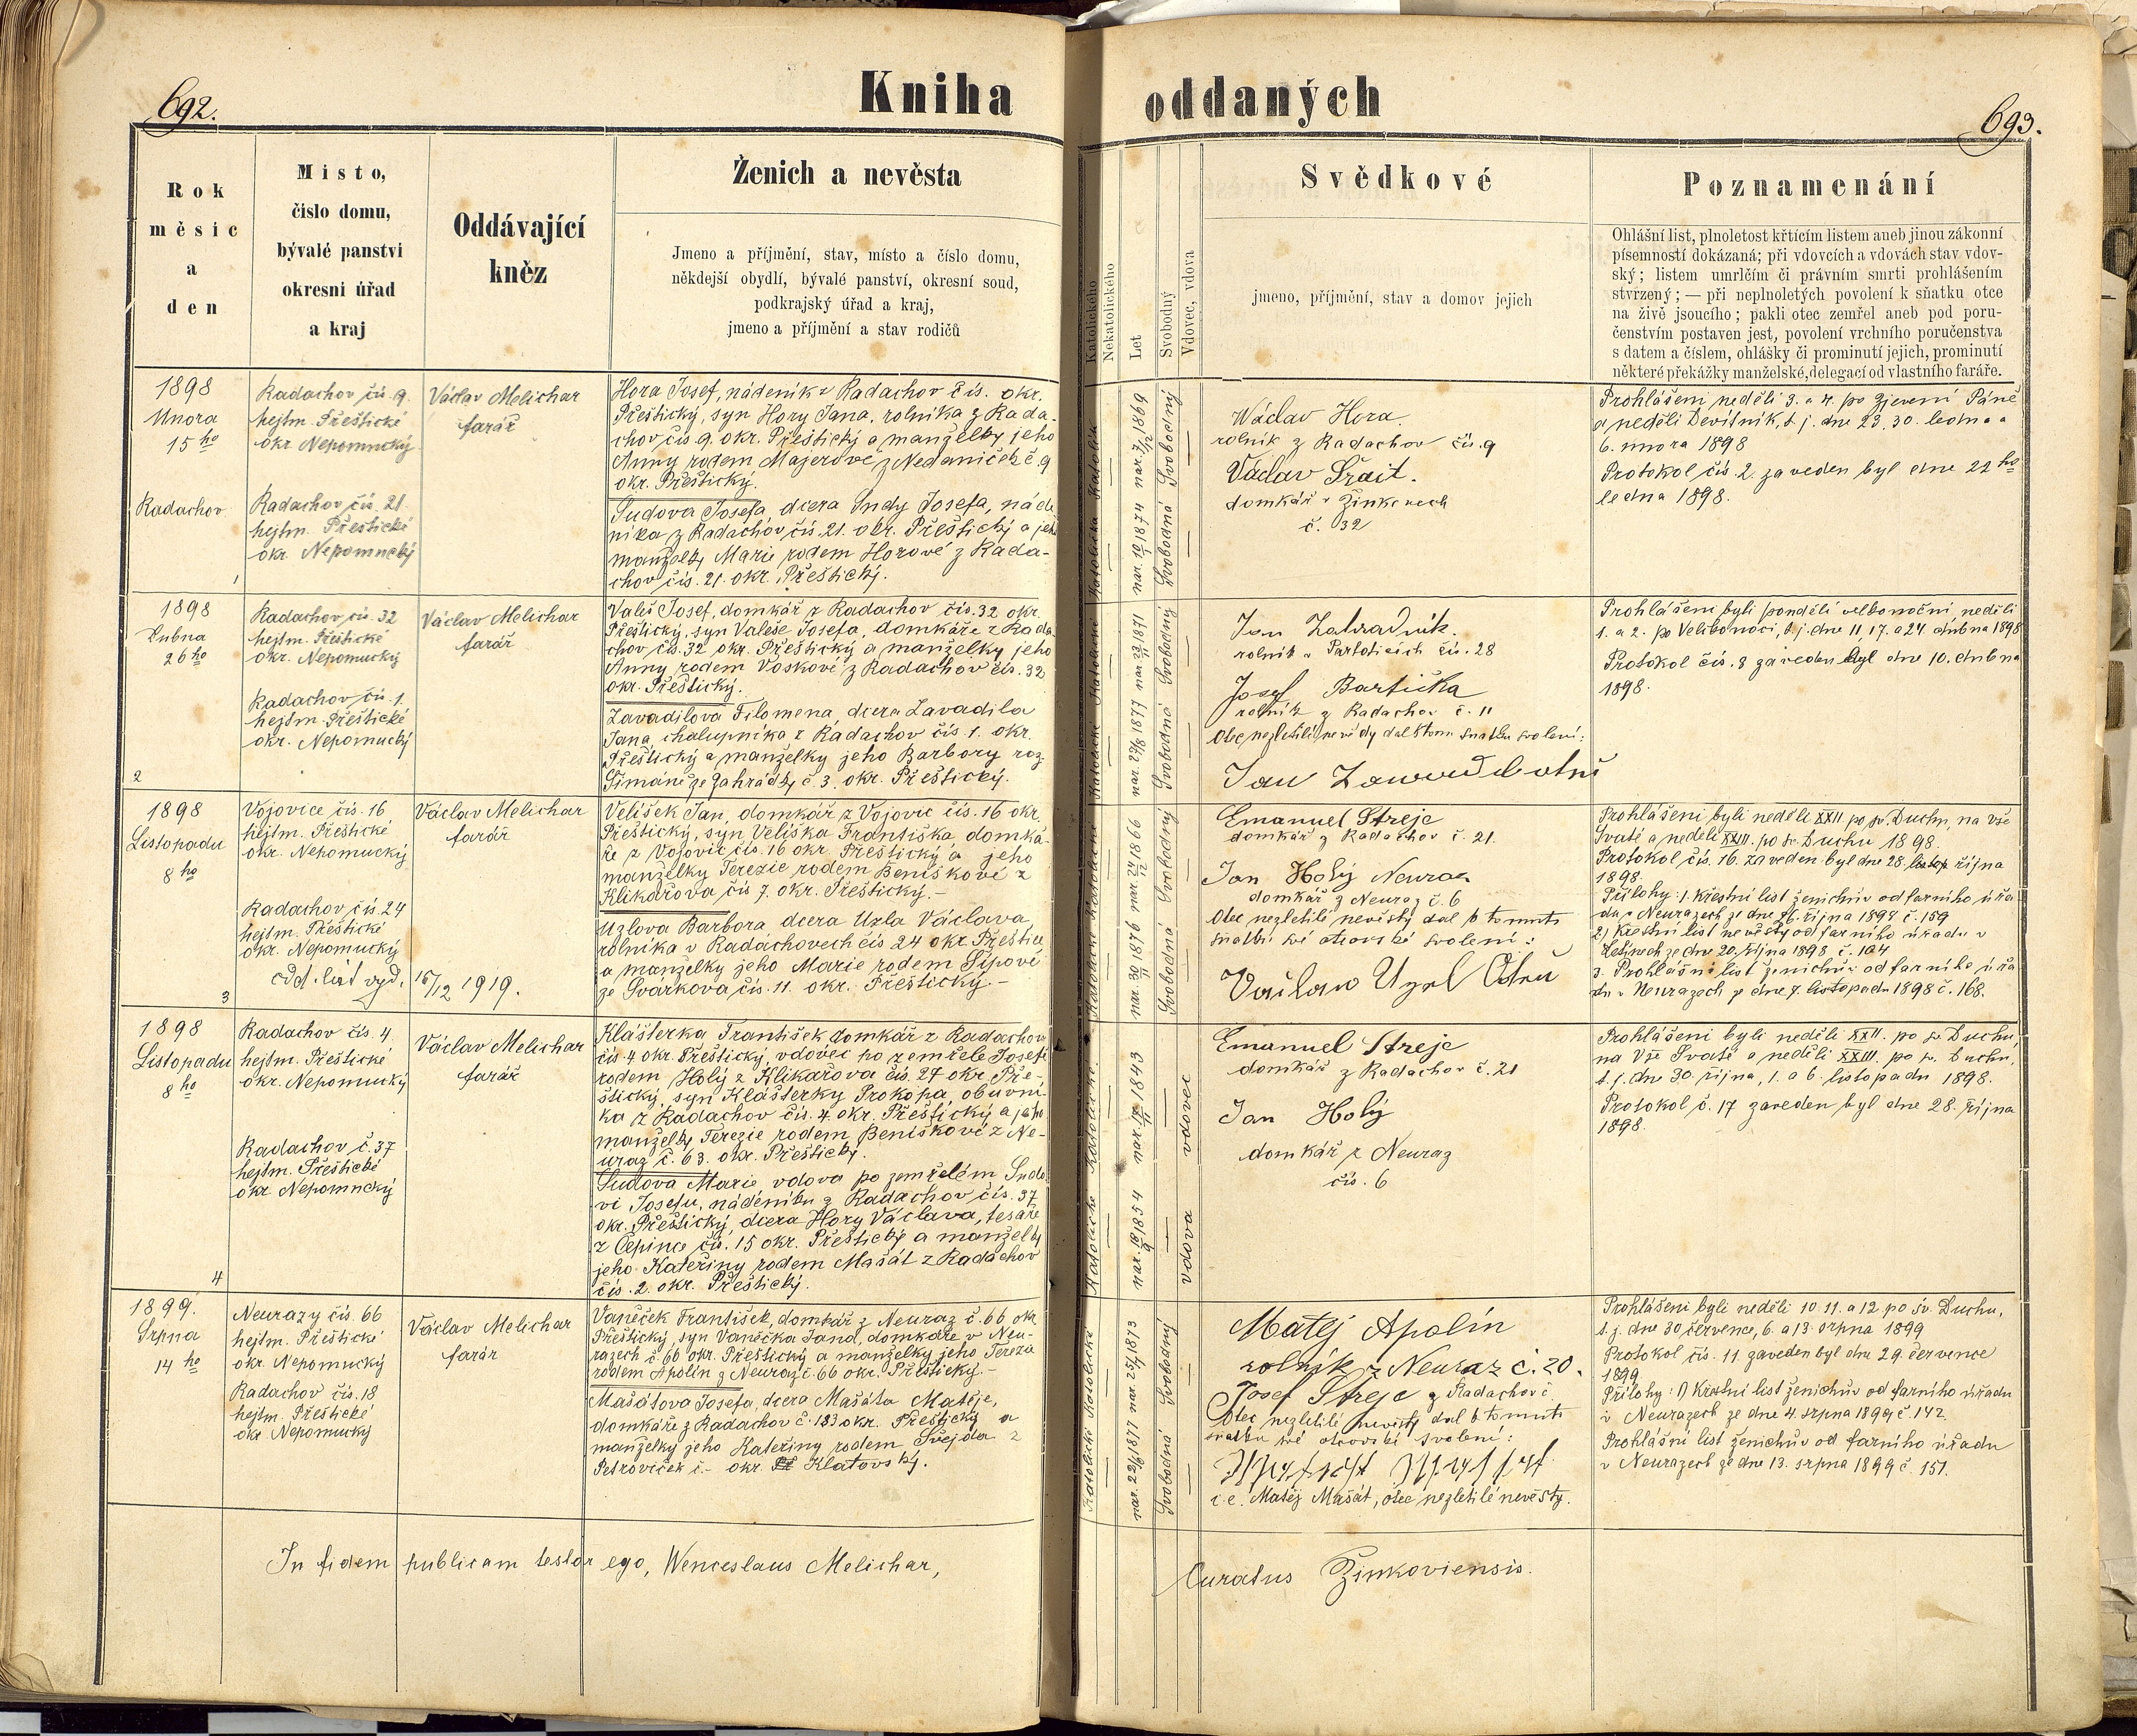 692.
Kniha
oddaných
693.
Rok
měsíc
a
den
Místo,
číslo domu,
bývalé panství
okresní úřad
a kraj
Oddávající
kněz
Ženich a nevěsta
Jmeno a příjmění, stav, místo a číslo domu,
někdejší obydlí, bývalé panství, okresní soud,
podkrajský úřad a kraj,
jmeno a příjmění a stav rodičů
Katolického
Nekatolického
Let
Svobodný
Vdovec, vdova
Svědkové
jmeno, příjmění, stav a domov jejich
Poznamenání
Ohlášní list, plnoletost křtícím listem aneb jinou zákonní
písemností dokázaná; při vdovcích a vdovách stav vdov-
ský; listem umrlčím či právním smrti prohlášením
stvrzený; — při neplnoletých povolení k sňatku otce
na živě jsoucího; pakli otec zemřel aneb pod poru-
čenstvím postaven jest, povolení vrchního poručenstva
s datem a číslem, ohlášky či prominutí jejich, prominutí
některé překážky manželské, delegací od vlastního faráře.
1898
Února
15 ho
Radachov
1
Radachov čís. 9
hejtm. Přeštické
okr. Nepomucký
Radachov čís. 21
hejtm. Přeštické
okr. Nepomucký
Václav Melichar
farář
Hora Josef, nádeník z Radachov čís. okr.
Přeštický, syn Hory Jana, rolníka z Rada-
chov čís. 9. okr. Přeštický a manželky jeho
Anny rodem Majerové z Nedaniček č. 9
okr. Přeštický.
Sudova Josefa, dcera Sudy Josefa, náde
níka z Radachov čís. 21. okr. Přeštický a jeho
manželky Marie rodem Horové z Rada-
chov čís. 21. okr. Přeštický.
Katolík
nar. 1869
Svobodný
Katolička
nar. 1874
Svobodná
Wáclav Hora
rolník z Radachov čís. 9
Václav
domkář v Žinkovech
č. 32
Prohlášení neděli 3. a 4. po Zjevení Páně
a neděli Devítník, t. j. dne 23. 30. ledna a
6. února 1898
Protokol čís. 2. zaveden byl dne 22 ho
ledna 1898.
1898
Dubna
26 ho
2
Radachov čís. 32
hejtm. Přeštické
okr. Nepomucký
Radachov čís. 1.
hejtm. Přeštické
okr. Nepomucký
Václav Melichar
farář
Valeš Josef, domkář z Radachov čís. 32 okr.
Přeštický, syn Valeše Josefa, domkáře z Rada-
chov čís. 32 okr. Přeštický a manželky jeho
Anny rodem Voskové z Radachov čís. 32
okr. Přeštický.
Zavadilova Filomena, dcera Zavadila
Jana, chalupníka z Radachov čís. 1. okr.
Přeštický a manželky jeho Barbory roz.
Šimáně ze Zahrádky č. 3. okr. Přeštický.
nar. 1871
Svobodný
nar. 1877
Svobodná
Jan Zahradník
rolník v Partoticích čís. 28
Josef Bartička
rolník z Radachov č. 11
Otec nezletilé nevěsty dal k tomu sňatku svolení:
Jan
Prohlášeni byli pondělí velkonoční, neděli
1. a 2. po Velikonoci, t. j. dne 11, 17. a 24. dubna 1898
Protokol čís. 8 zaveden byl dne 10. dubna
1898.
1898
Listopadu
8 ho
3
Vojovice čís. 16
hejtm. Přeštické
okr. Nepomucký
Radachov čís. 24
hejtm. Přeštické
okr. Nepomucký
odd. list vyd. 16/12 1919.
Václav Melichar
farář
Velíšek Jan, domkář z Vojovic čís. 16 okr.
Přeštický, syn Velíška Františka, domká-
ře z Vojovic čís. 16 okr. Přeštický a jeho
manželky Terezie rodem Beniškové z
Klikařova čís 7. okr. Přeštický.-
Uzlova Barbora, dcera Uzla Václava,
rolníka v Radachovech čís 24 okr. Přeštice
a manželky jeho Marie rodem Šípové
ze Svárkova čís. 11. okr. Přeštický.-
nar. 1866
Svobodný
nar. 1876
Svobodná
Emanuel Streje
domkář z Radachov č. 21.
Jan Holý Neuraz
domkář z Neuraz č. 6
Otec nezletilé nevěsty dal k tomuto
sňatku své otcovské svolení:
Vaclav Uzel Otec
Prohlášeni byli neděli XXII po sv. Duchu, na Vše
Svaté a neděli XXIII. po sv. Duchu 1898.
Protokol čís. 16. zaveden byl dne 28. října
1898.
Přílohy: 1. Křestní list ženichův od farního úřa
du v Neurazech ze dne 26. října 1898 č. 159
2) Křestní list nevěsty od farního úřadu v
ze dne 20. října 1898 č. 104
3. Prohlášní list ženichův od farního úřa
du v Neurazech z dne 7. listopadu 1898 č. 168.
1898
Listopadu
8 ho
4
Radachov čís 4.
hejtm. Přeštické
okr. Nepomucký
Radachov č. 37
hejtm. Přeštické
okr. Nepomucký
Václav Melichar
farář
Klášterka František domkář z Radachov
čís 4 okr. Přeštický, vdovec po zemřelé Josefě
rodem Holý z Klikařova čís. 27 okr. Pře-
štický, syn Klášterky Prokopa, obuvní-
ka z Radachov čís. 4. okr. Přeštický a jeho
manželky Terezie rodem Beniškové z Ne-
uraz č. 63. okr. Přeštický.
Sudova Marie, vdova po zemřelém Sudo
vi Josefu, nádeníku z Radachov čís. 37
okr. Přeštický, dcera Hory Václava, tesaře
z Čepince čís. 15 okr. Přeštický a manželky
jeho Kateřiny rodem Mašát z Radachov
čís. 2. okr. Přeštický.
nar. 1843
vdovec
nar. 1854
vdova
Emanuel Streje
domkář z Radachov č. 21
Jan Holý
domkář z Neuraz
čís. 6
Prohlášeni byli neděli XXII. po sv. Duchu,
na Vše Svaté a neděli XXIII. po sv. Duchu,
t. j. dne 30. října, 1. a 6. listopadu 1898.
Protokol č. 17 zaveden byl dne 28. října
1898.
1899.
Srpna
14 ho
Neurazy čís. 66
hejtm. Přeštické
okr. Nepomucký
Radachov čís. 18
hejtm. Přeštické
okr. Nepomucký
Václav Melichar
farár
Vaněček František, domkář z Neuraz č. 66 okr
Přeštický, syn Vaněčka Jana, domkáře v Neu-
razech č. 66 okr. Přeštický a manželky jeho Terezie
rodem Apolín z Neuraz č. 66 okr. Přeštický.-
Mašátova Josefa, dcera Mašáta Matěje,
domkáře z Radachov č. 183 okr. Přeštický a
manželky jeho Kateřiny rodem Švejda z
Petroviček č.- okr. Klatovský.
nar. 1873
Svobodný
nar. 1877
Svobodná
Matěj Apolín
rolník z Neuraz č. 20.
Josef Streje z Radachov č
Otec nezletilé nevěsty dal k tomuto
sňatku své otcovské svolení:
i. e. Matěj Mašát, otec nezletilé nevěsty.
Prohlášeni byli neděli 10. 11. a 12. po sv. Duchu,
t. j. dne 30 července, 6. a 13. srpna 1899
Protokol čís. 11. zaveden byl dne 29. července
1899
Přílohy: 1) Křestní list ženichův od farního úřadu
v Neurazech ze dne 4. srpna 1899 č. 142
Prohlášní list ženichův od farního úřadu
v Neurazech ze dne 13. srpna 1899 č. 151.
In fidem publicam testor ego, Wenceslaus Melichar,
Curatus Žinkoviensis.